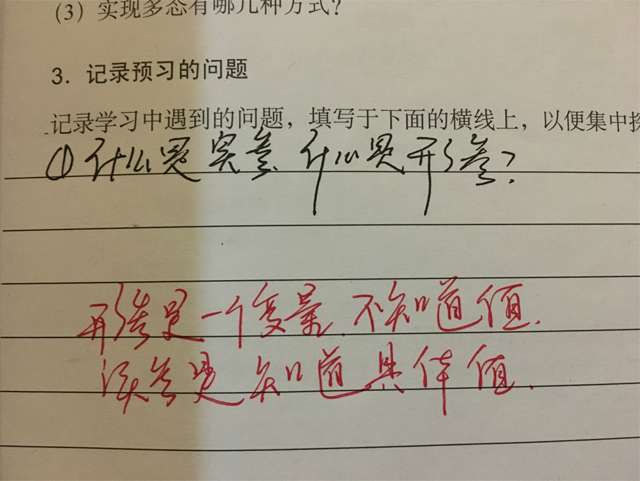 (3) 实现多态有哪几种方式?
3. 记录预习的问题
记录学习中遇到的问题，填写于下面的横线上，以便集中探
①什么是实参 什么是形参?
形参是一个变量.不知道值.
实参是知道具体值.